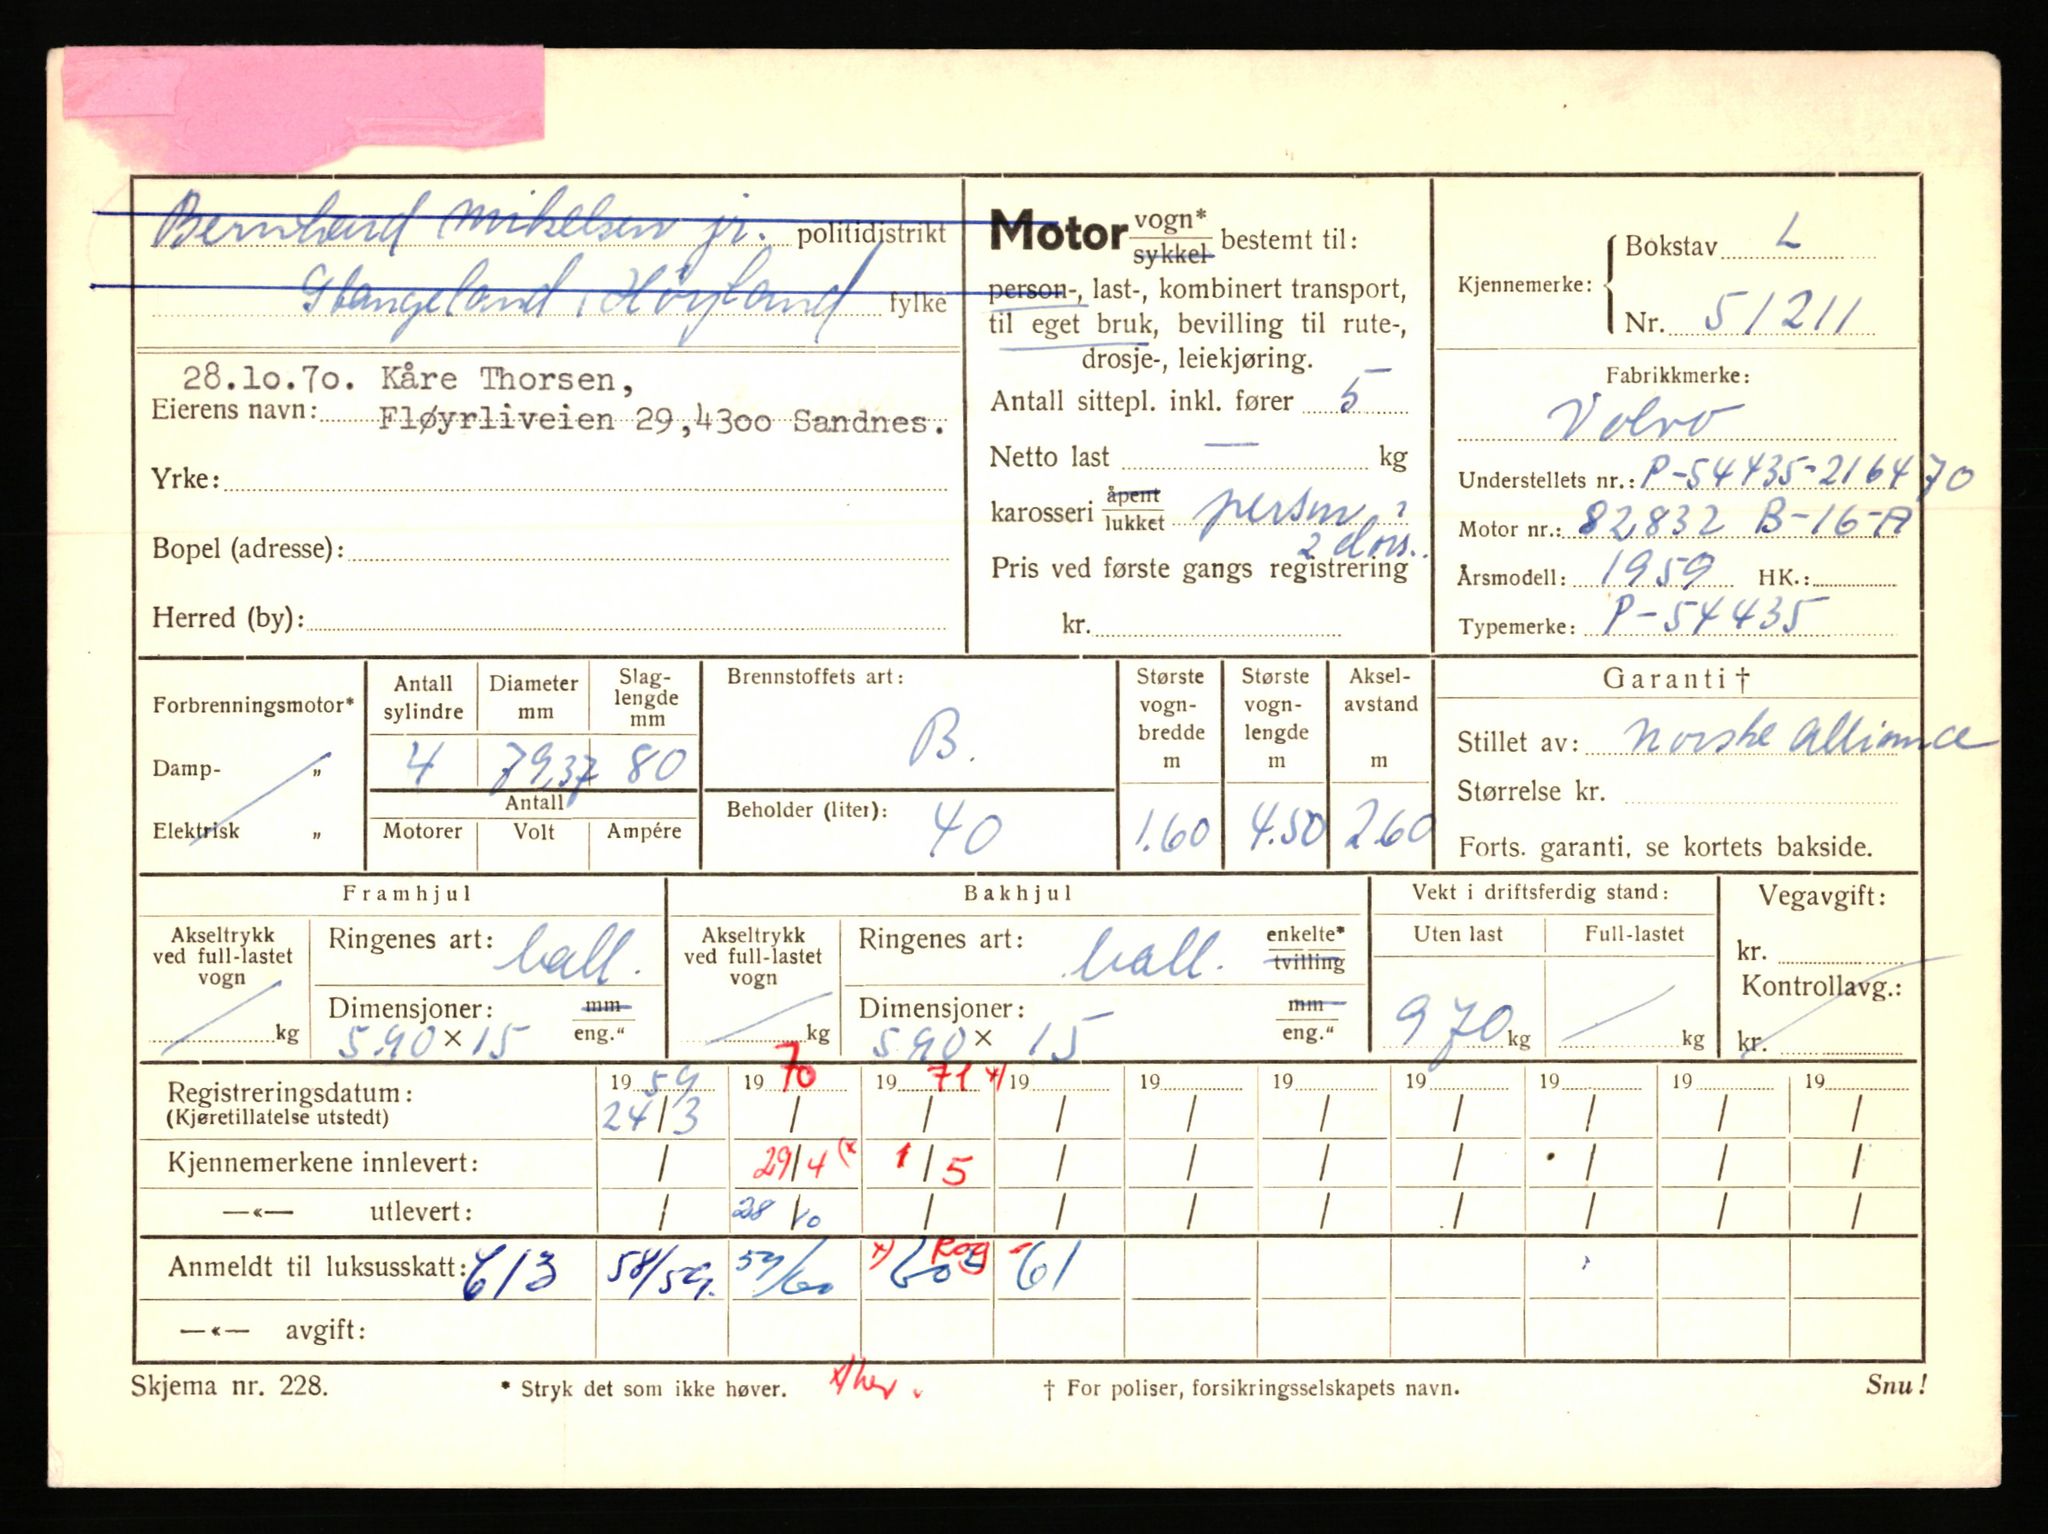 Bernhard Mikelsen jr. politidistrikt
Stangeland, Höyland fylke
28.10.70. Kåre Thorsen,
Eierens navn: Fløyrliveien 29,4300 Sandnes.
Yrke:
Bopel (adresse):
Herred (by):
Motor vogn* sykkel bestemt til:
person-, last-, kombinert transport,
til eget bruk, bevilling til rute-,
drosje-, leiekjøring.
Antall sittepl. inkl. fører 5
Netto last — kg
karosseri åpent lukket person
2 dørs.
Pris ved første gangs registrering
kr.
Kjennemerke: Bokstav L
Nr. 51211
Fabrikkmerke:
Volvo
Understellets nr.: P-54435-216470
Motor nr.: 82832 B-16-A
Årsmodell: 1959 HK.:
Typemerke: P-54435
Forbrenningsmotor*
Damp- „
Elektrisk „
Antall sylindre Diameter mm Slag-lengde mm
4 79,37 80
Antall
Motorer Volt Ampére
Brennstoffets art:
B.
Beholder (liter): 40
Største vogn-bredde m Største vogn-lengde m Aksel-avstand m
1.60 4.50 2.60
Garanti †
Stillet av: Norske Alliance
Størrelse kr.
Forts. garanti, se kortets bakside.
Framhjul
Akseltrykk ved full-lastet vogn kg
Ringenes art: ball.
Dimensjoner: mm
5.90 × 15 eng."
Bakhjul
Akseltrykk ved full-lastet vogn kg
Ringenes art: ball. enkelte* tvilling
Dimensjoner: mm
590 × 15 eng."
Vekt i driftsferdig stand:
Uten last Full-lastet
970 kg kg
Vegavgift:
kr.
Kontrollavg.:
kr.
Registreringsdatum: 19 59 19 70 19 71 x) 19 19 19 19 19 19 19
(Kjøretillatelse utstedt) 24/3 / / / / / / / / /
Kjennemerkene innlevert: / 29/4 (x 1/5 / / / / / / /
—«— utlevert: / 28/10 / / / / / / / /
Anmeldt til luksusskatt: 613 58/59. 59/60 x) Rog - 61
—«— avgift:
Skjema nr. 228. * Stryk det som ikke høver. x) her. † For poliser, forsikringsselskapets navn. Snu!